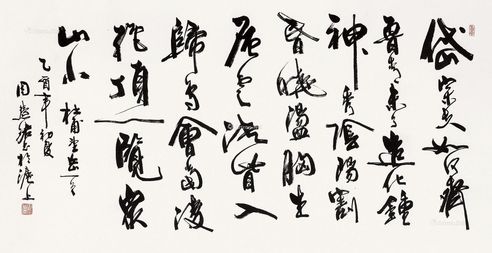 岱宗夫如何齊
魯青未了造化鍾
神秀陰陽割
昏曉盪胸生
層云決眥入
歸鳥會當凌
絕頂一覽眾
山小 杜甫望岳一首
乙酉年初夏
周慧珺於滬上